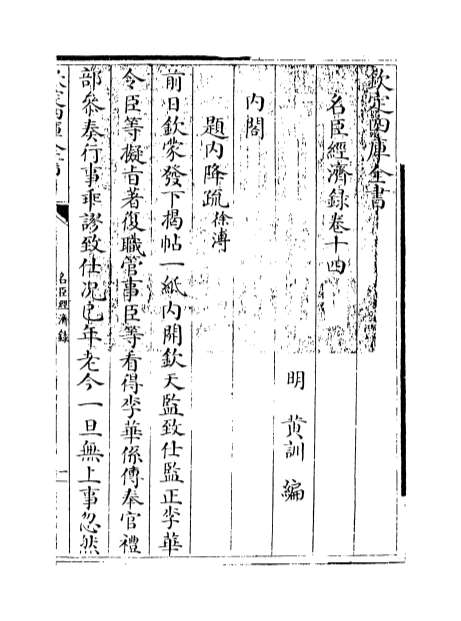 欽定四庫全書
名臣經濟録卷十四
明 黄訓 編
内閣
題内降疏 徐溥
前日欽䝉發下揭帖一紙内開欽天監致仕監正李華
令臣等擬㫖著復職管事臣等看得李華係傳奉官禮
部叅奏行事乖謬致仕况已年老今一旦無上事忽然
欽定四庫全書
名臣經濟録
一